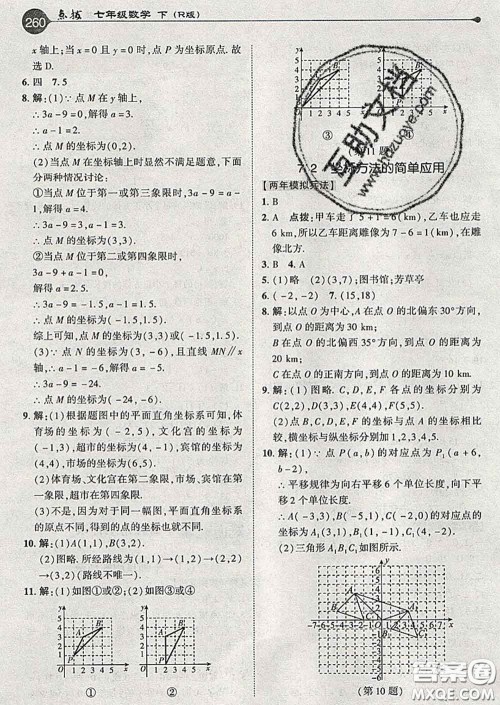 260 点拨 七年级数学 下 (R版)
x轴上;当x=0且y=0时,点P为坐标原点.故
选D.
6. 四 7. 5
8. 解:(1)∵点M在y轴上,
∴3a-9=0,解得a=3.
∴a-1=2.
∴点M的坐标为(0,2).
(2)当点M在坐标轴上时显然不满足题意,下面
分两种情况讨论:
①当点M位于第一或第三象限时,3a-9=a-1,
解得a=4.
∴3a-9=a-1=3.
∴点M的坐标为(3,3).
②当点M位于第二或第四象限时,
3a-9+a-1=0,
解得a=2.5.
∴3a-9=-1.5,a-1=1.5.
∴点M的坐标为(-1.5,1.5).
综上可知,点M的坐标为(3,3)或(-1.5,1.5).
(3)∵点N的坐标为(3,-6),且直线MN∥x
轴,∴a-1=-6.解得a=-5.
∴3a-9=-24.
∴点M的坐标为(-24,-6).
9. 解:(1)根据题图中的平面直角坐标系可知,体
育场的坐标为(-2,5),文化宫的坐标为
(-1,3),超市的坐标为(4,-1),宾馆的坐标为
(4,4),市场的坐标为(6,5).
(2)体育场、文化宫在第二象限,市场、宾馆在第
一象限,超市在第四象限.
(3)不是.因为对于同一幅图,平面直角坐标系
的原点不同,得到的点的坐标也就不同.
10. 解:(1)A(1,1),B(3,2).
(2)图略.所经路线为(1,1)→(1,2)→(2,2)
→(3,2)(路线不唯一).
11. 解:(1)如图①或②;(2)如图③或④
① ②
③
7.2 坐标方法的简单应用
【两年模拟
1. B
2. A 点拨:甲车走了5+1=6(km),乙车也应走
6 km,所以乙车距离雕像7-6=1(km),在雕
像北方.
3. B 4. A
5. (1)略 (2)(3,7);图书馆;芳草亭
6. (-2,-2) 7. (15,18)
8. 解:以点O为中心,A在点O的北偏东30°方向,
到点O的距离为30 km;
B在点O的北偏西35°方向,到点O的距离为
20 km;
C在点O的正南方向,到点O的距离为10 km.
9. 解:(1)图略.C,D,E,F各点的坐标分别为
C(2,2),D(3,3),E(4,4),F(5,5).
(2)点B,C,D,E,F的坐标的共同特点是每点的
横坐标与纵坐标分别相同.
10. 解:(1)∵点P(a,b)的对应点为P₁(a+6,
b-2),
∴平移规律为向右平移6个单位长度,向下平
移2个单位长度.
∴A(-3,3),B(-5,1),C(-2,0)的对应点的坐
标分别为A₁(3,1),B₁(1,-1),C₁(4,-2).
(2)三角形A₁B₁C₁如图所示.
(第10题)
互助文档
www.hdzuoye.com
答案圈
MXQE.COM